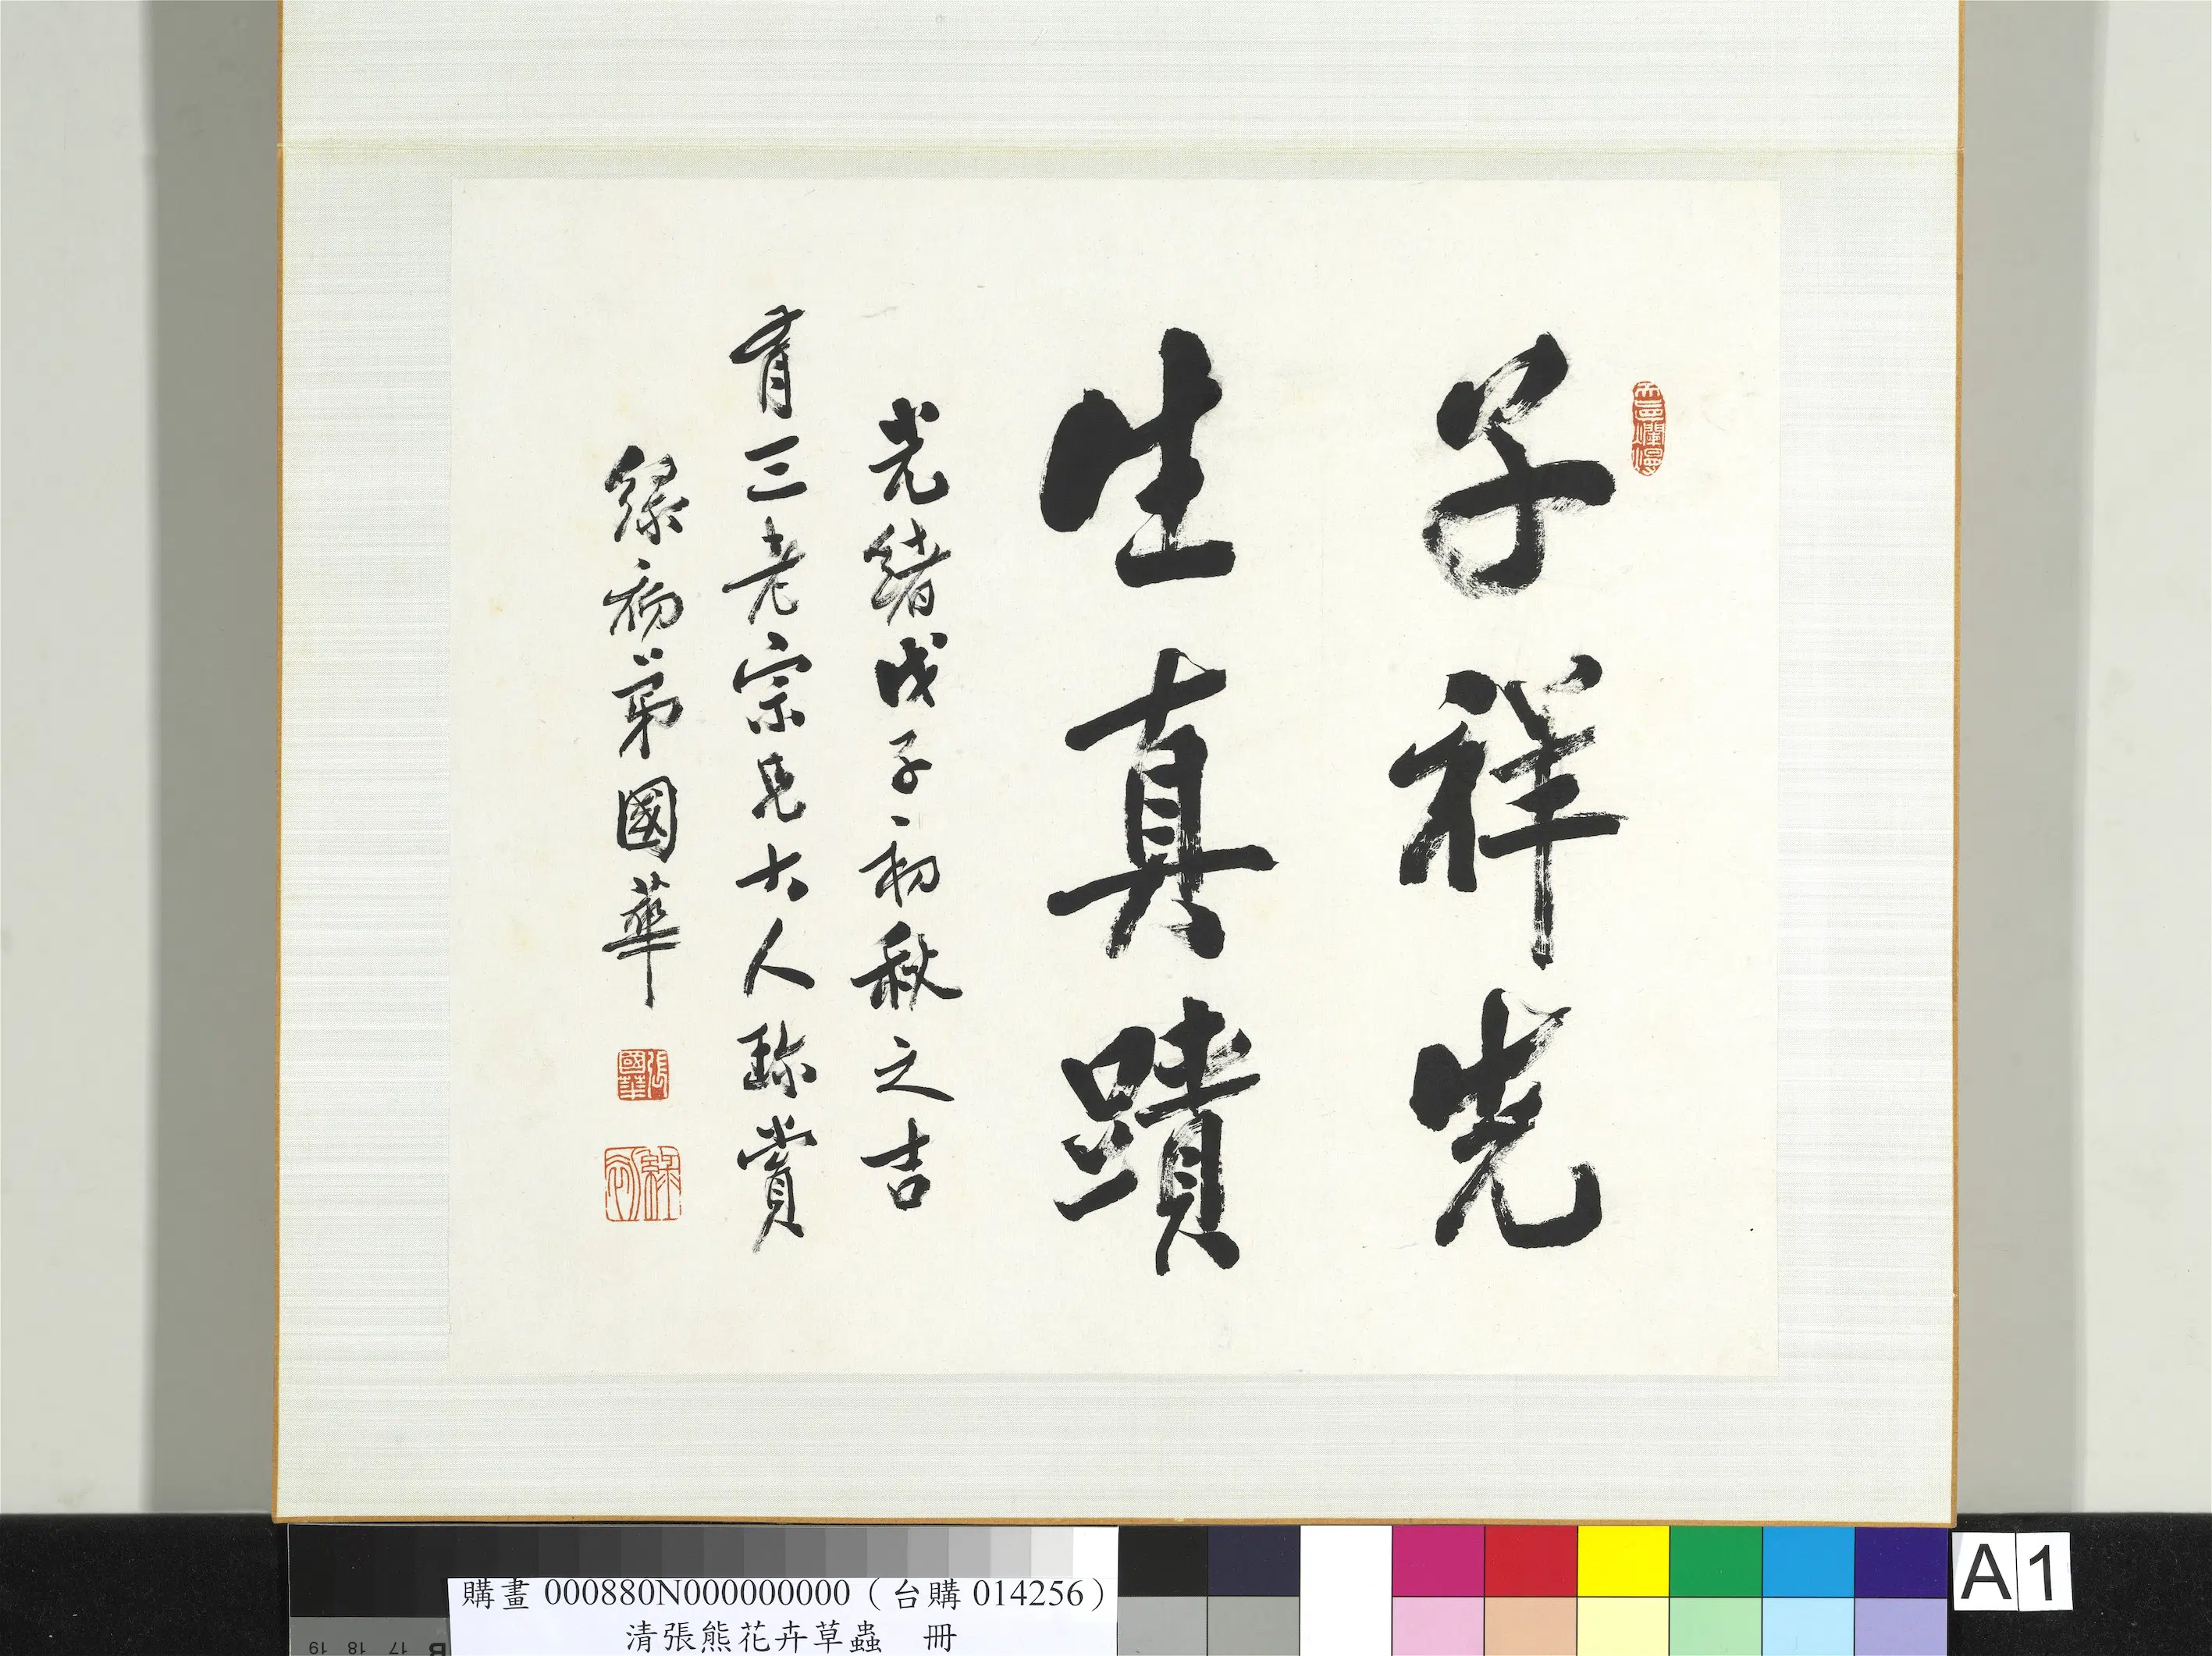 子祥先
生真蹟
光緒戊子初秋之吉
育三老宗兄大人珎賞
弟國華
天真爛漫
張國華
購畫 000880N000000000 (台購 014256)
清張熊花卉草蟲 冊
19 18 17 B
A 1